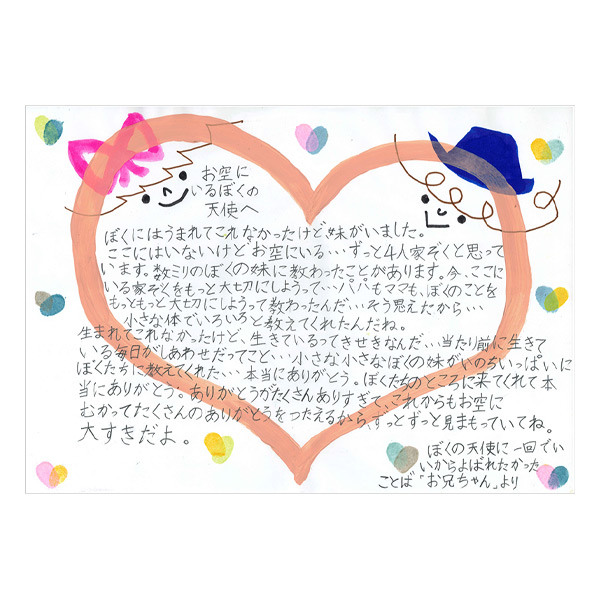 お空に
いるぼくの
天使へ
ぼくにはうまれてこれなかったけど妹がいました。
ここにはいないけどお空にいる…ずっと4人家ぞくと思って
います。数ミリのぼくの妹に教わったことがあります。今、ここに
いる家ぞくをもっと大切にしようって…パパもママも、ぼくのことを
もっともっと大切にしようって教わったんだ…そう思えたから…
小さな体でいろいろと教えてくれたんだね。
生まれてこれなかったけど、生きているってきせきなんだ…当たり前に生きて
いる毎日がしあわせだってこと…小さな小さなぼくの妹がいのちいっぱいに
ぼくたちに教えてくれた…本当にありがとう。ぼくたちのところに来てくれて本
当にありがとう。ありがとうがたくさんありすぎて、これからもお空に
むかってたくさんのありがとうをつたえるから、ずっとずっと見まもっていてね。
大すきだよ。
ぼくの天使に一回でい
いからよばれたかった
ことば「お兄ちゃん」より